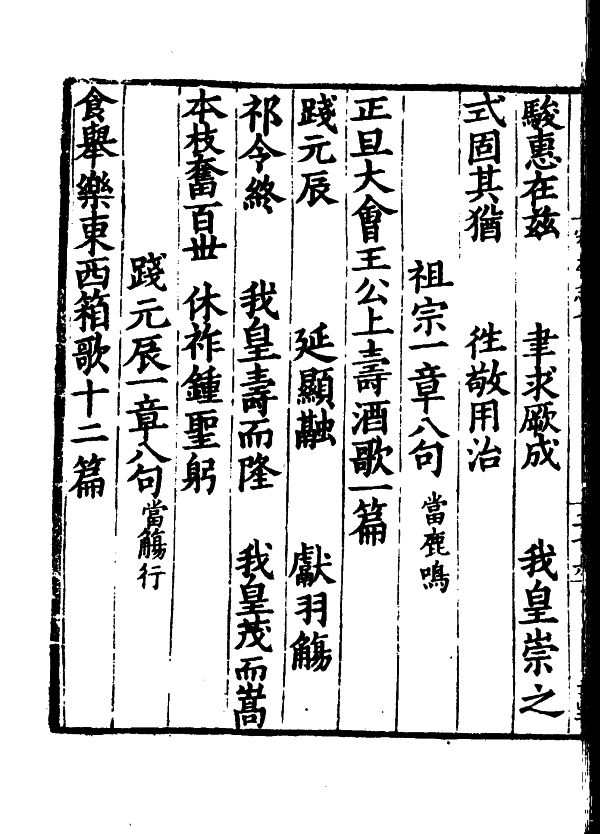 駿惠在兹　聿求厥成　我皇崇之
式固其猶　徃敬用治
祖宗一章八句當鹿鳴
正旦大會王公上壽酒歌一篇
踐元辰　延顯融　獻羽觴
祁令終　我皇壽而隆　我皇茂而嵩
本枝奮百丗　休祚鍾聖躬
踐元辰一章八句當觴行
食舉樂東西箱歌十二篇